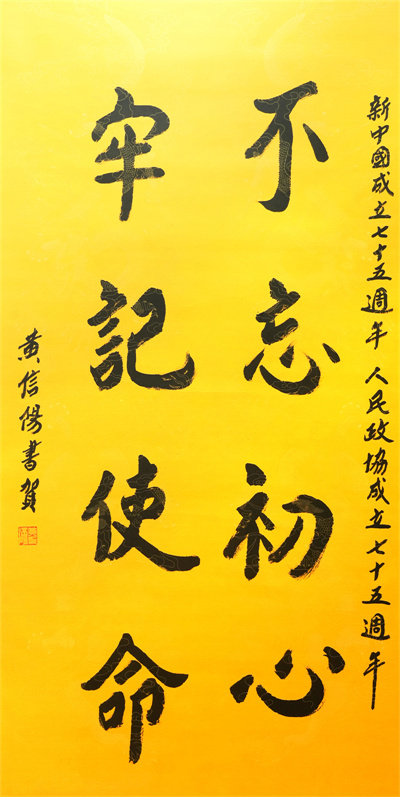 新中國成立七十五週年 人民政協成立七十五週年
不忘初心
牢記使命
黄信陽書賀